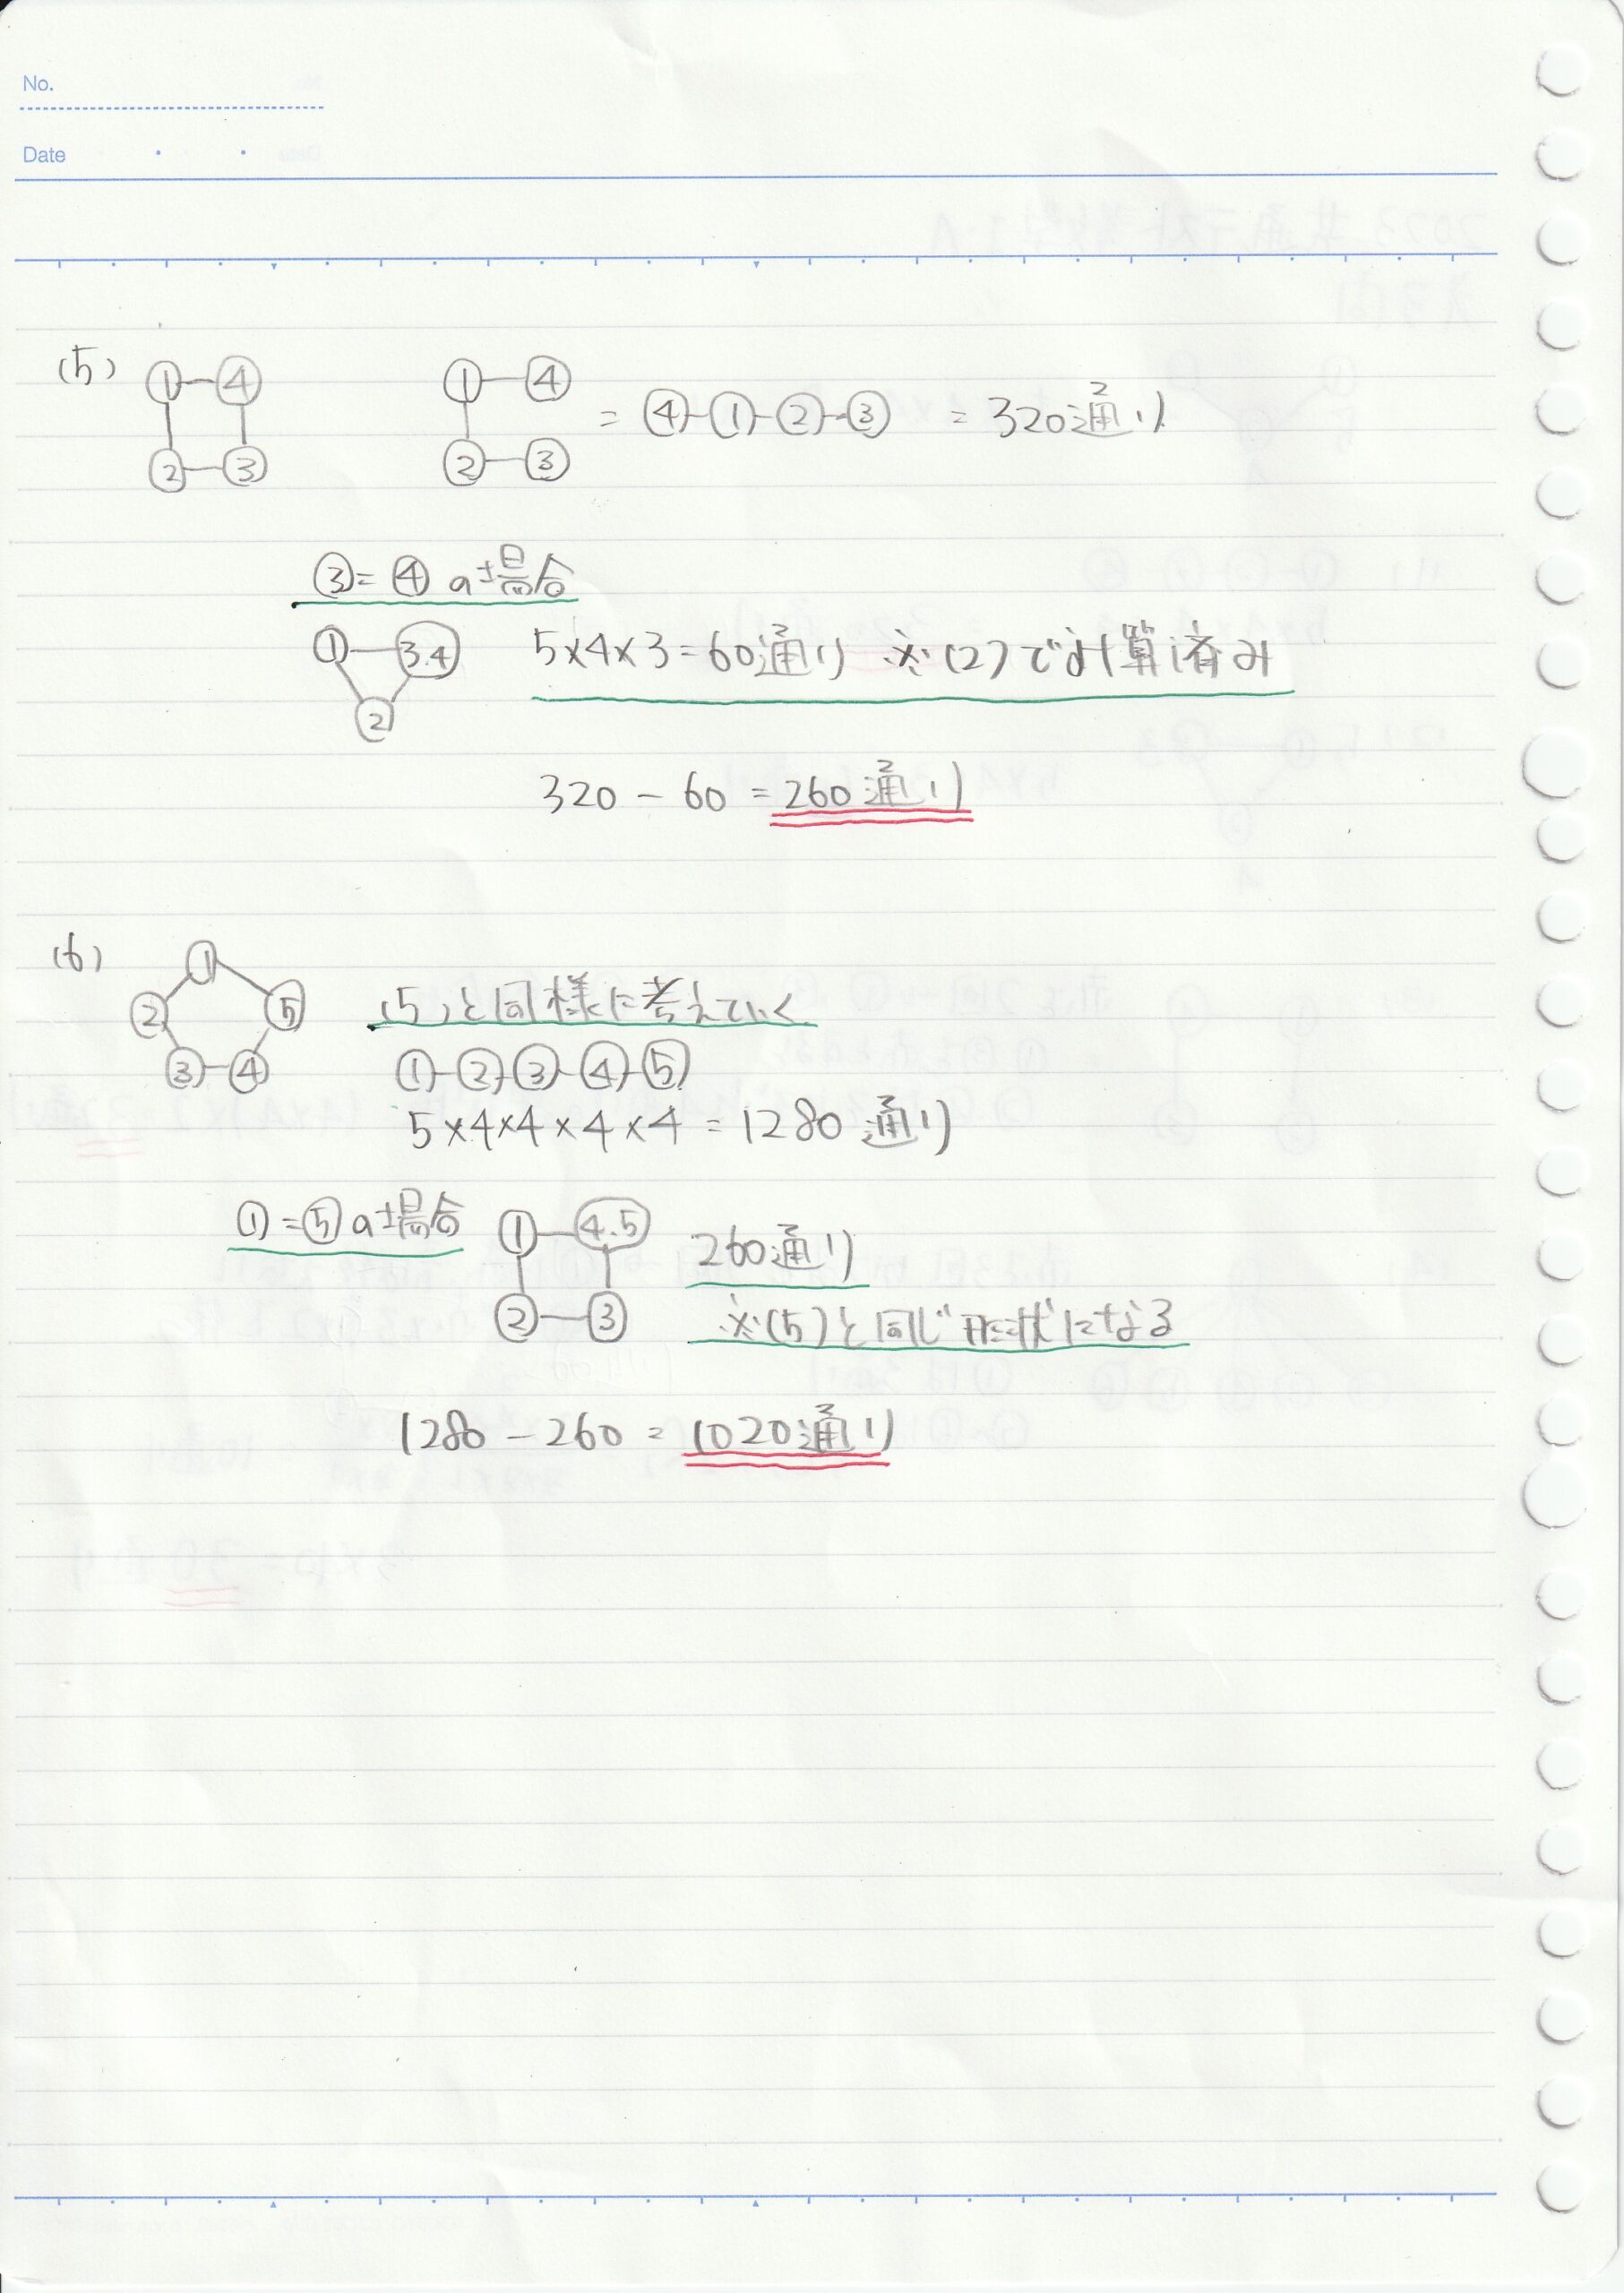 No.
Date
(5) ①-④ ①-④
②-③ ②-③ = ④-①-②-③ = 320通り
③=④の場合
① 3.4 5×4×3=60通り ※(2)で計算済み
②
320-60=260通り
(6) ① ② ⑤ ③ ④
(5)と同様に考えていく
①-②-③-④-⑤
5×4×4×4×4=1280通り
①=⑤の場合 ① 4.5 260通り
②-③ ※(5)と同じ形状になる
1280-260=1020通り